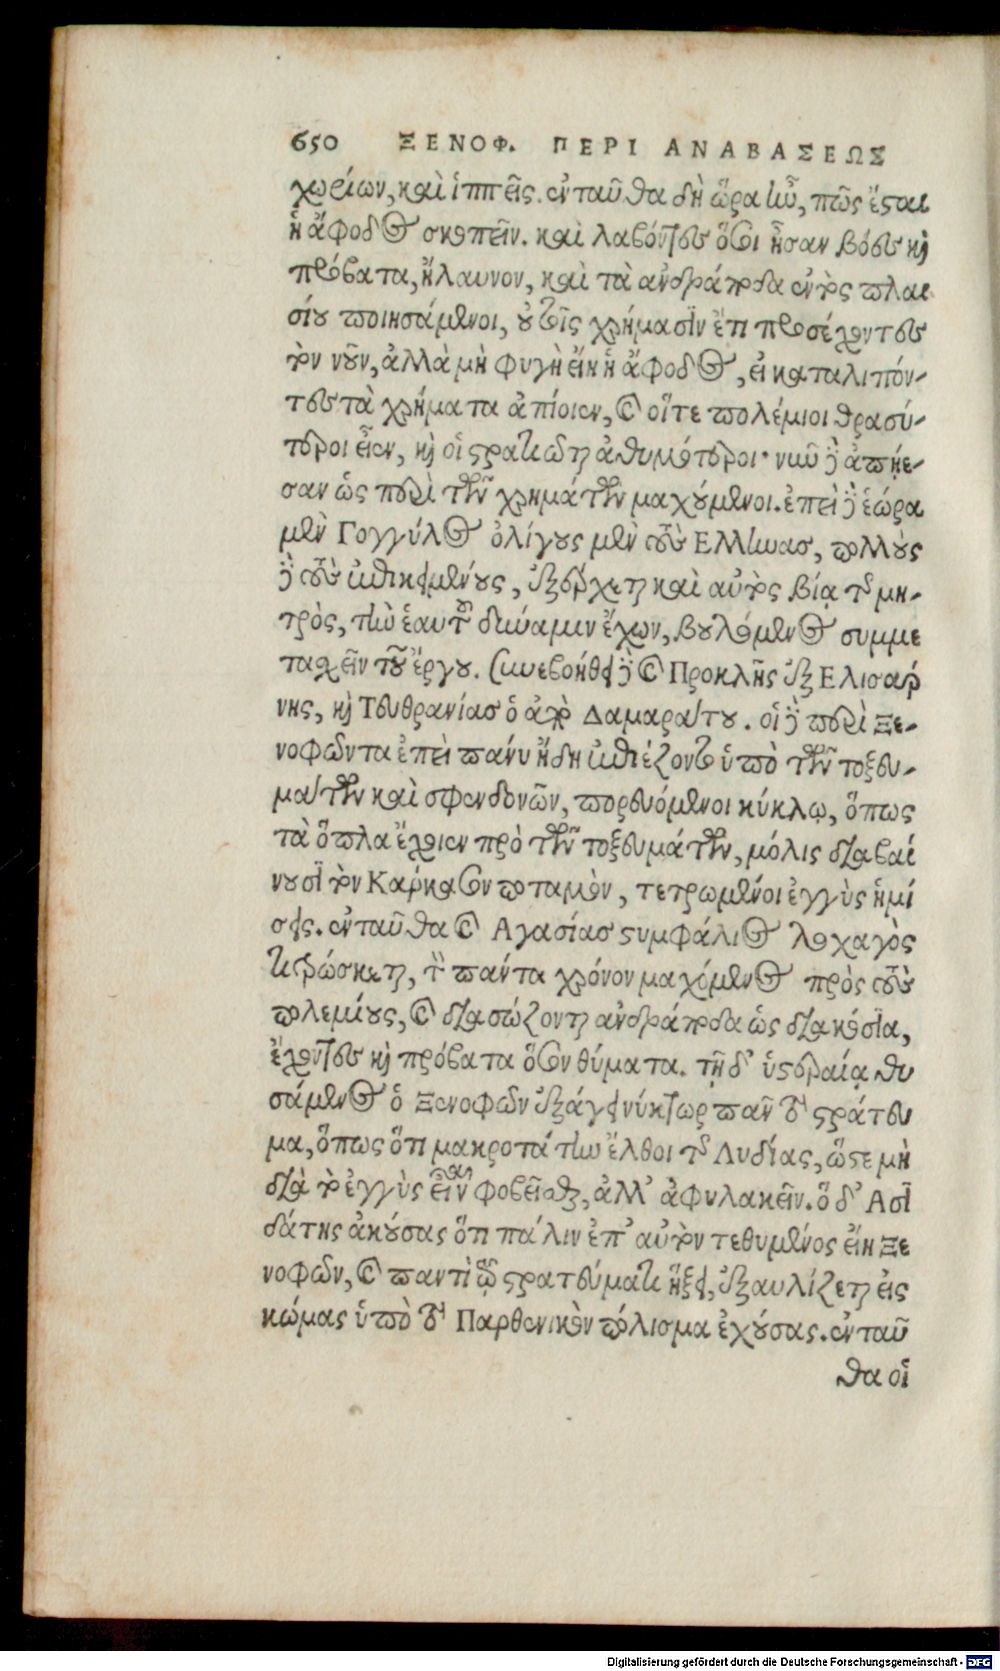 650 ΞΕΝΟΦ. ΠΕΡΙ ΑΝΑΒΑΣΕΩΣ
χωρίων, καὶ ἱππεῖς. ἐνταῦθα δὴ ὥρα ἦν, πῶς ἔσται
ἡ ἄφοδος σκοπεῖν. καὶ λαβόντες ὅσοι ἦσαν βόες καὶ
πρόβατα, ἤλαυνον, καὶ τὰ ἀνδράποδα ἐντὸς πλαι
σίου ποιησάμενοι, οὐ τοῖς χρήμασιν ἔτι προσέχοντες
τὸν νοῦν, ἀλλὰ μὴ φυγὴ εἴη ἡ ἄφοδος, εἰ καταλιπόν-
τες τὰ χρήματα ἀπίοιεν, καὶ οἵτε πολέμιοι θρασύ-
τεροι εἶεν, καὶ οἱ στρατιῶται ἀθυμότεροι· νῦν δὲ ἀπῄε-
σαν ὡς περὶ τῶν χρημάτων μαχούμενοι. ἐπεὶ δὲ ἑώρα
μὲν Γογγύλος ὀλίγους μὲν τοὺς Ελληνας, πολλοὺς
δὲ τοὺς ἐπικειμένους, ἐξέρχεται καὶ αὐτὸς βίᾳ τῆς μη-
τρὸς, τὴν ἑαυτοῦ δύναμιν ἔχων, βουλόμενος συμμε
τασχεῖν τοῦ ἔργου. συνεβοήθει δὲ καὶ Προκλῆς ἐξ Ελισάρ
νης, καὶ Τευθρανίας ὁ ἀπὸ Δαμαράτου. οἱ δὲ περὶ Ξε-
νοφῶντα ἐπεὶ πάνυ ἤδη ἐπιέζοντο ὑπὸ τῶν τοξευ-
μάτων καὶ σφενδονῶν, πορευόμενοι κύκλῳ, ὅπως
τὰ ὅπλα ἔχοιεν πρὸ τῶν τοξευμάτων, μόλις διαβαί
νουσι τὸν Κάρκασον ποταμὸν, τετρωμένοι ἐγγὺς ἡμί
σεις. ἐνταῦθα καὶ Αγασίας στυμφάλιος λοχαγὸς
τιτρώσκεται, τὸν πάντα χρόνον μαχόμενος πρὸς τοὺς
πολεμίους, καὶ διασώζονται ἀνδράποδα ὡς διακόσια,
ἔχοντες καὶ πρόβατα ὅσον θύματα. τῇ δ' ὑστεραίᾳ θυ
σάμενος ὁ Ξενοφῶν ἐξάγει νύκτωρ πᾶν τὸ στράτευ
μα, ὅπως ὅτι μακροτάτην ἔλθοι τῆς Λυδίας, ὥστε μὴ
διὰ τὸ ἐγγὺς εἶναι φοβεῖσθαι, ἀλλ' ἀφυλακεῖν. ὁ δ' Ασι
δάτης ἀκούσας ὅτι πάλιν ἐπ' αὐτὸν τεθυμένος εἴη Ξε
νοφῶν, καὶ παντὶ τῷ στρατεύματι ἥξει, ἐξαυλίζεται εἰς
κώμας ὑπὸ τὸ Παρθενικὸν πόλισμα ἐχούσας. ἐνταῦ
θα οἱ
Digitalisierung gefördert durch die Deutsche Forschungsgemeinschaft - DFG